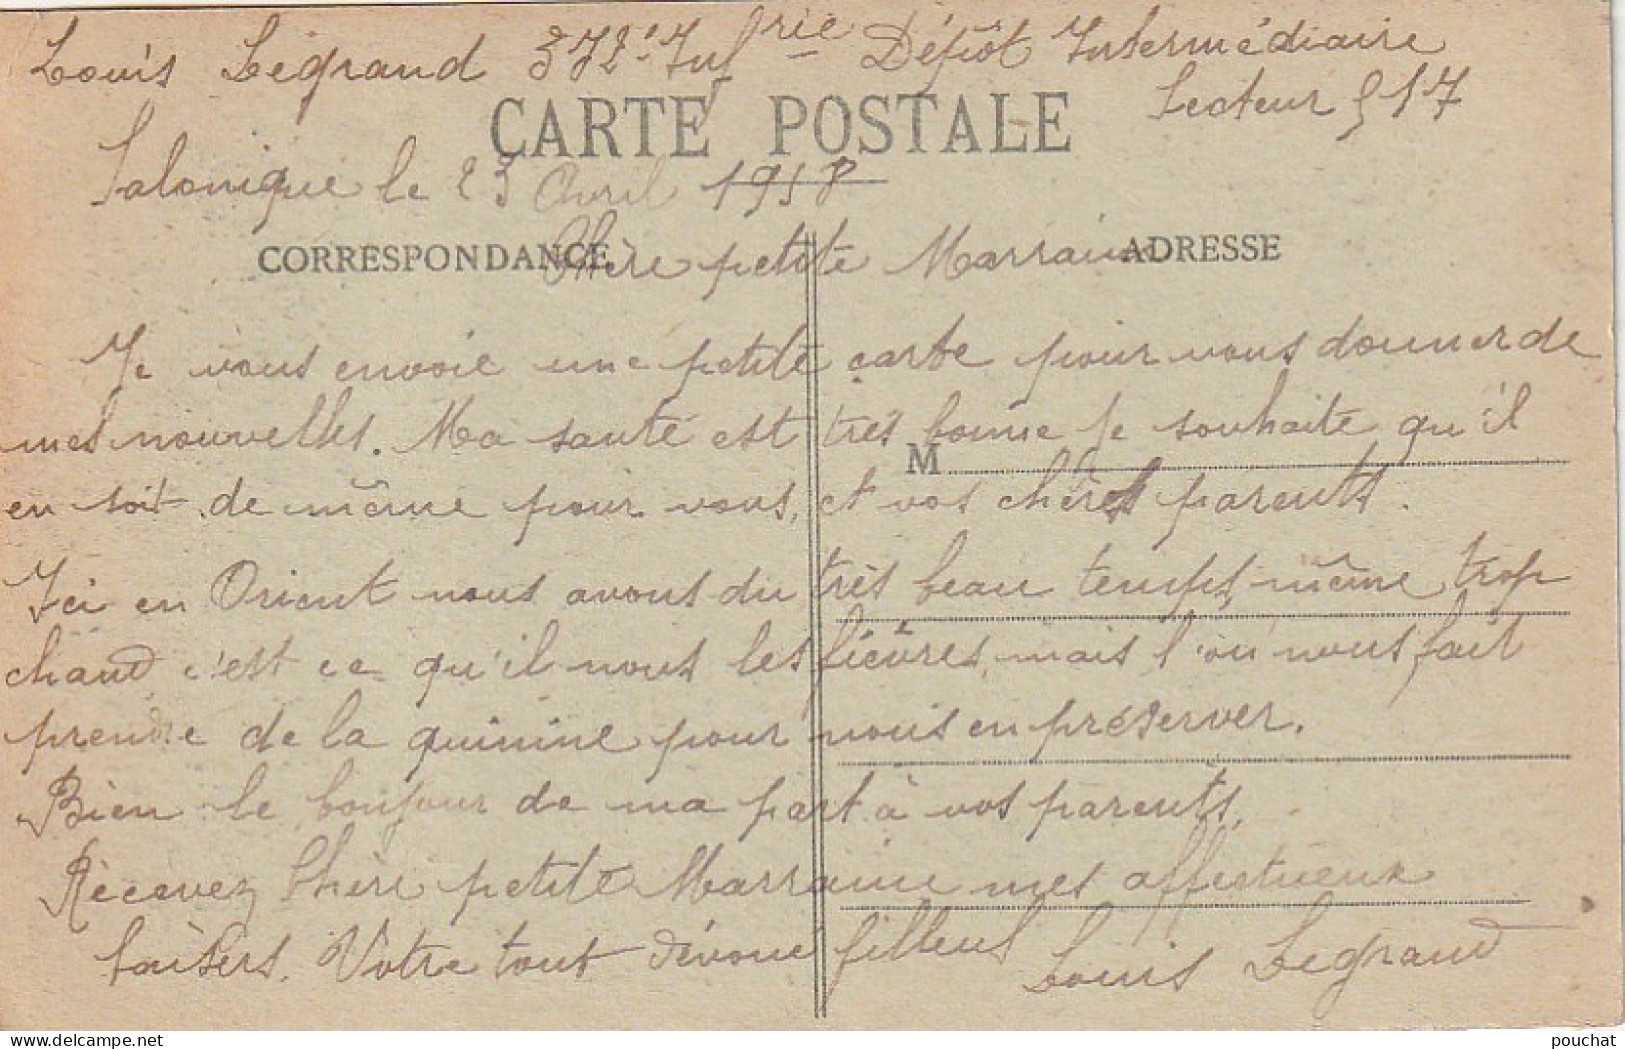 Louis Legrand 372e Infrie Dépôt Intermédiaire
Secteur 517
CARTE POSTALE
Salonique le 23 Avril 1918
CORRESPONDANCE
ADRESSE
Chère petite Marraine
Je vous envoie une petite carte pour vous donner de
mes nouvelles. Ma santé est très bonne je souhaite qu'il
M
en soit de même pour vous, et vos chers parents.
Ici en Orient nous avons du très beau temps, même trop
chaud c'est ce qu'il nous les fièvres, mais l'on nous fait
prendre de la quinine pour nous en préserver.
Bien le bonjour de ma part à vos parents.
Recevez Chère petite Marraine mes affectueux
baisers. Votre tout dévoué filleul Louis Legrand
pouchat